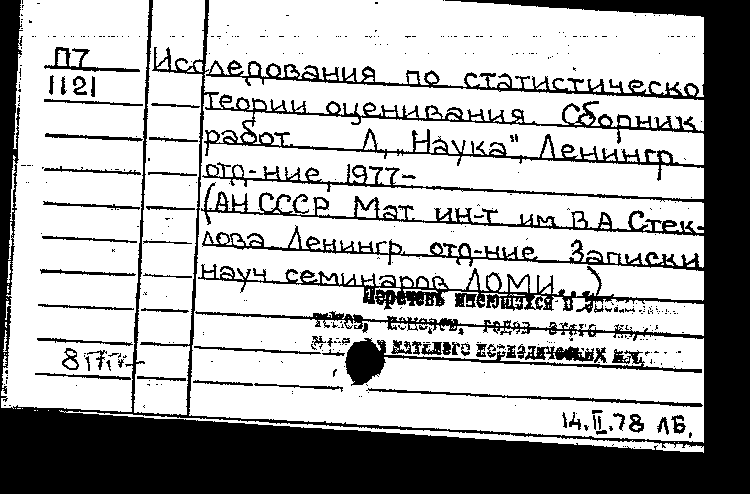 П7 Исследования по статистическо
1121 теории оценивания. Сборник
работ. Л., „Наука", Ленингр.
отд-ние, 1977-
(АН СССР. Мат. ин-т им. В.А. Стек-
лова. Ленингр. отд-ние. Записки
науч. семинаров ЛОМИ...)
Перечень имеющихся в
томов, номеров, годов этого
каталоге периодических
14.II.78 ЛБ.